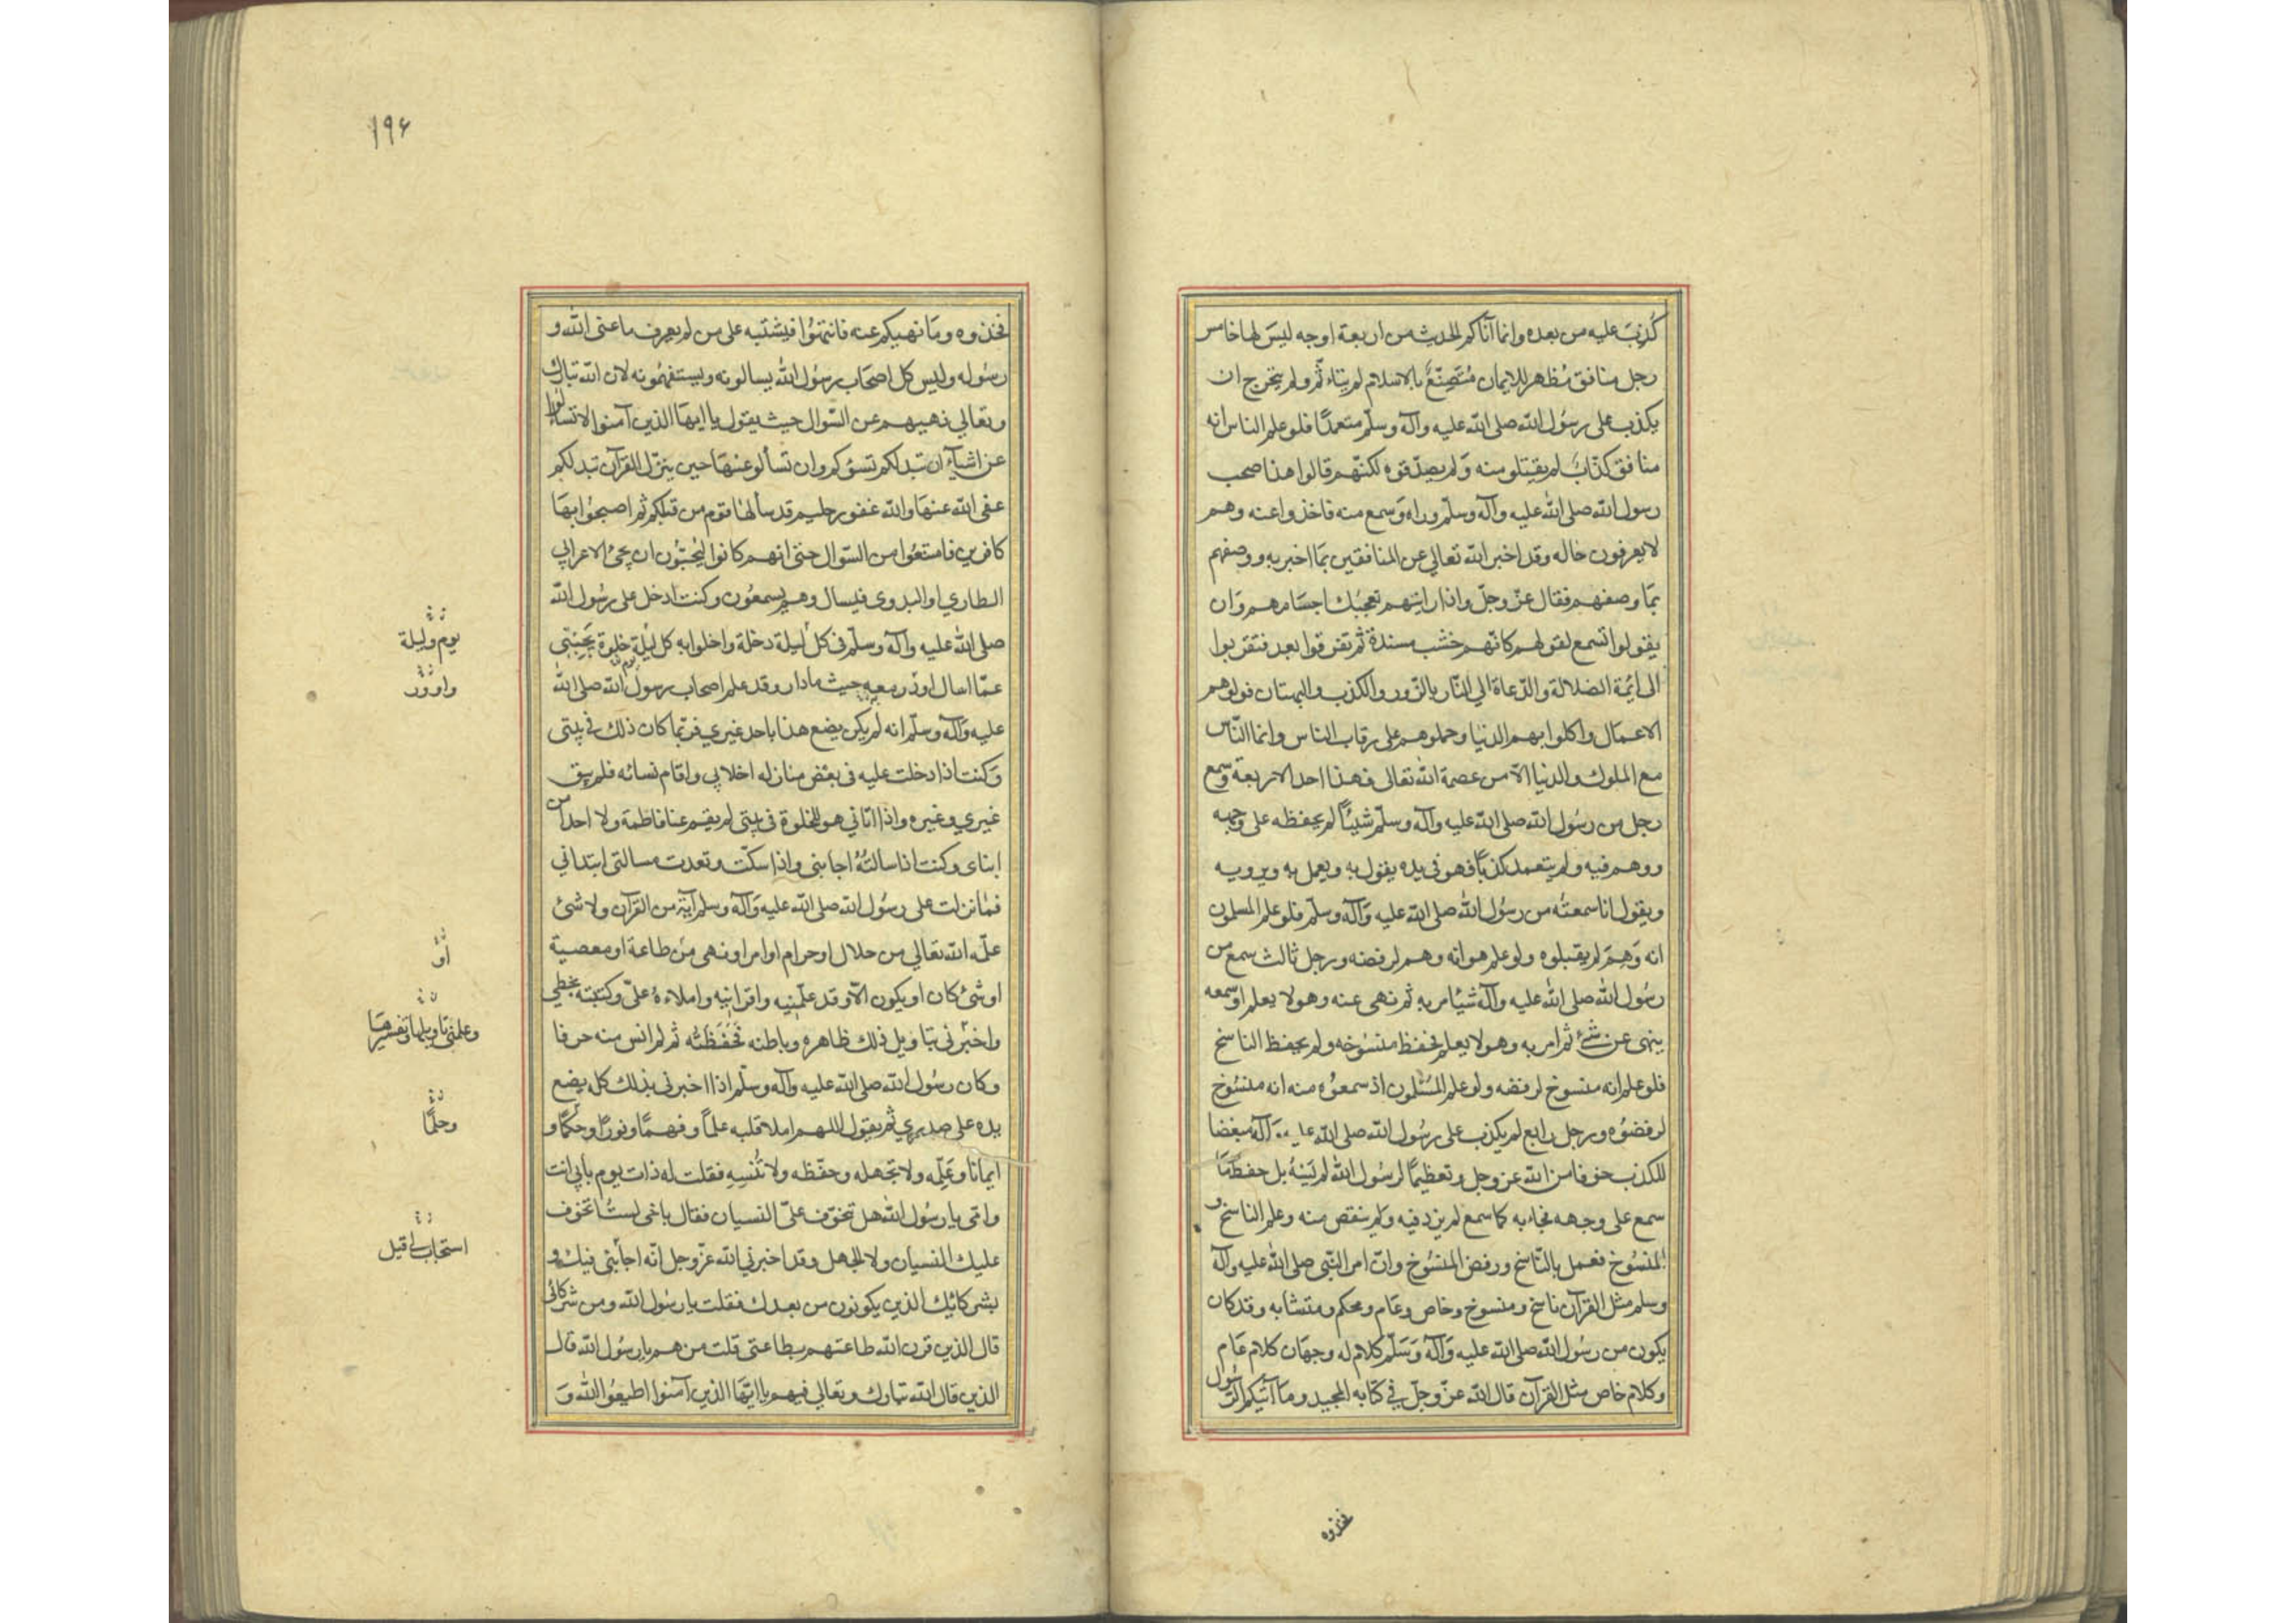 كُذِبَ عليه من بعده وانما آتاكم الحديث من اربعة اوجه ليسَ لها خامس
رجل منافق مُظهر للايمان مُتَصَنِّعٌ بالاسلام لم يتاء ثّم ولم يتحرج ان
يكذب على رسُول الله صلى الله عليه وآله وسلّم متعمدًا فلو علم الناس انه
منافق كذّابٌ لم يقبلو منه وَلم يصدّقوه لكنّهم قالوا هذا صحب
رسول الله صلى الله عليه وآله وسلّم وراه وَسمع منه فاخذوا عنه وهم
لا يعرفون حاله وقد اخبر الله تعالي عن المنافقين بمَا اخبر به ووصفهم
بمَا وصفهم فقال عزّ وجلّ واذا رايتهم تعجبُك اجسَامهم وَان
يقولوا تسمع لقولهم كانّهم خشب مسندة ثم تفرقوا بعد فتقربوا
الى ائمة الضلالة والدّعاة الي النّار بالزّور والكذب والبهتان فولوهم
الاعمَال واكلوا بهم الدنيا وحملوهم على رقاب الناس وانما النّاس
مع الملوك والدنيا الّا من عصمة الله تعالى فهذا احد الاربعة وسمع
رجل من رسُول الله صلى الله عليه وآله وسلّم شيئًا لم يحفظه على وجهه
ووهم فيه ولم يتعمد كذبًا فهو في يده يقول به ويعمل به ويرويه
ويقول انا سمعتُه من رسُول الله صلى الله عليه وَآله وسلّم فلو علم المسلمون
انه وَهِمَ لم يقبلوه ولو علم هو انه وهم لرفضه ورجل ثالث سمع من
رسُول الله صلى الله عليه وآله شيئا مر به ثم نهى عنه وهو لا يعلم او سمعه
ينهى عن شئ ثم امر به وهو لا يعلم فحفظ منسُوخه ولم يحفظ الناسخ
فلو علم انه منسوخ لرفضه ولو علم المسْلمون اذ سمعوُه منه انه منسُوخ
لرفضوُه ورجل رابع لم يكذب على رسُول الله صلى الله عليه وآله مبغضا
للكذب خوفا من الله عز وجل وتعظيمًا لرسُول الله لم يَنسَهُ بل حفظ مَا
سمع على وجهه فجاء به كما سمع لم يزد فيه وَلم ينقص منه وعلم الناسخ و
المنسُوخ فعمل بالنّاسخ ورفض المنسُوخ وانّ امر النّبى صلى الله عليه وآله
وسلم مثل القرآن ناسخ ومنسوخ وخاص وعَام ومحكم ومتشابه وقد كان
يكون من رسُول الله صلى الله عليه وَآله وَسَلّم كلام له وجهَان كلام عَام
وكلام خاص مثل القرآن قال الله عزّ وجلّ في كتابه المجيد ومَا آتيكم الرّسُول
فخذوه
١٩۶
فخذوه ومَا نهيكم عنه فانتهُوا فيشتبه على من لم يعرف ما عنى الله و
رسُوله وليس كل اصحَاب رسُول الله يسالونه ويستفهمُونه لان الله تبارك
وتعالي نهيهم عن السّوال حيث يقول يا ايهَا الذين آمنوا لا تسألوا
عن اشيآء ان تبد لكم تسؤكم وان تسألو عنهَا حين ينزّل القرآن تبد لكم
عفى الله عنهَا والله غفور حليم قد سألهَا قوم من قبلكم ثم اصبحُوا بهَا
كافرين فامتنعُوا من السّوال حتى انهم كانوا ليُحبّون ان يجئ الاعرابي
الطاري او البدوى فيسال وهم يسمعُون وكنت ادخل على رسُول الله
صلى الله عليه وآله وسلّم في كل ليلة دخلة واخلوا به كل ليلة خلوة يجيبنى
عمّا اسال ادور معه حيث ما دار وقد علم اصحاب رسول الله صلى الله
عليه وَآله وسلّم انه لم يكن يضع هذا باحد غيري فربّما كان ذلك في بيتى
وَكنت اذا دخلت عليه فى بعْض منازله اخلا بي واقام نسائه فلم يبق
غيري وغيره واذا اتاني هو للخلوة فى بيتى لم يقم عنا فاطمة ولا احدًا من
ابناى وكنت اذا سالتُهُ اجابنى واذا سكتّ وتعدت مسالتى ابتدانى
فما نزلت على رسُول الله صلى الله عليه وَآله وسلم آية من القرآن ولا شئ
علّمه الله تعالي من حلال او حرام او امر او نهى من طاعة او معصية
او شئ كان او يكون الّا وقد علّمنيه واقرانيه واملاءهُ علىّ وكتبته بخطي
واخبرنى بتاويل ذلك ظاهره وباطنه فَحَفظتُه ثم لم انس منه حرفا
وكان رسُول الله صلى الله عليه وآله وسلّم اذا اخبرنى بذلك كله يضع
يده على صدري ثم يقول اللهم املا قلبه علمًا وفهمًا ونورًا وحكمًا و
ايمانا وعَلِّمه ولا تجهله وحفّظه ولا تُنسِهِ فقلت له ذات يوم بابي انت
وامى يا رسُول الله هل تتخوّف علىّ النسيان فقال يا اخى لستُ اتخوف
عليك النسيان ولا الجهل وقد اخبرني الله عزّ وجل انّه اجابنى فيك و
بشركائك الذين يكونون من بعدك فقلت يا رسُول الله ومن شركائى
قال الذين قرن الله طاعتهم بطاعتى قلت من هم يا رسُول الله قال
الذين قال الله تبارك وتعالي فيهم يا ايّهَا الذين آمنوا اطيعُوا الله وَ
يوم وليلة
وادور
او
وعلمنى تاويلها وتفسيرها
وحلمًا
استجاب لى قيل